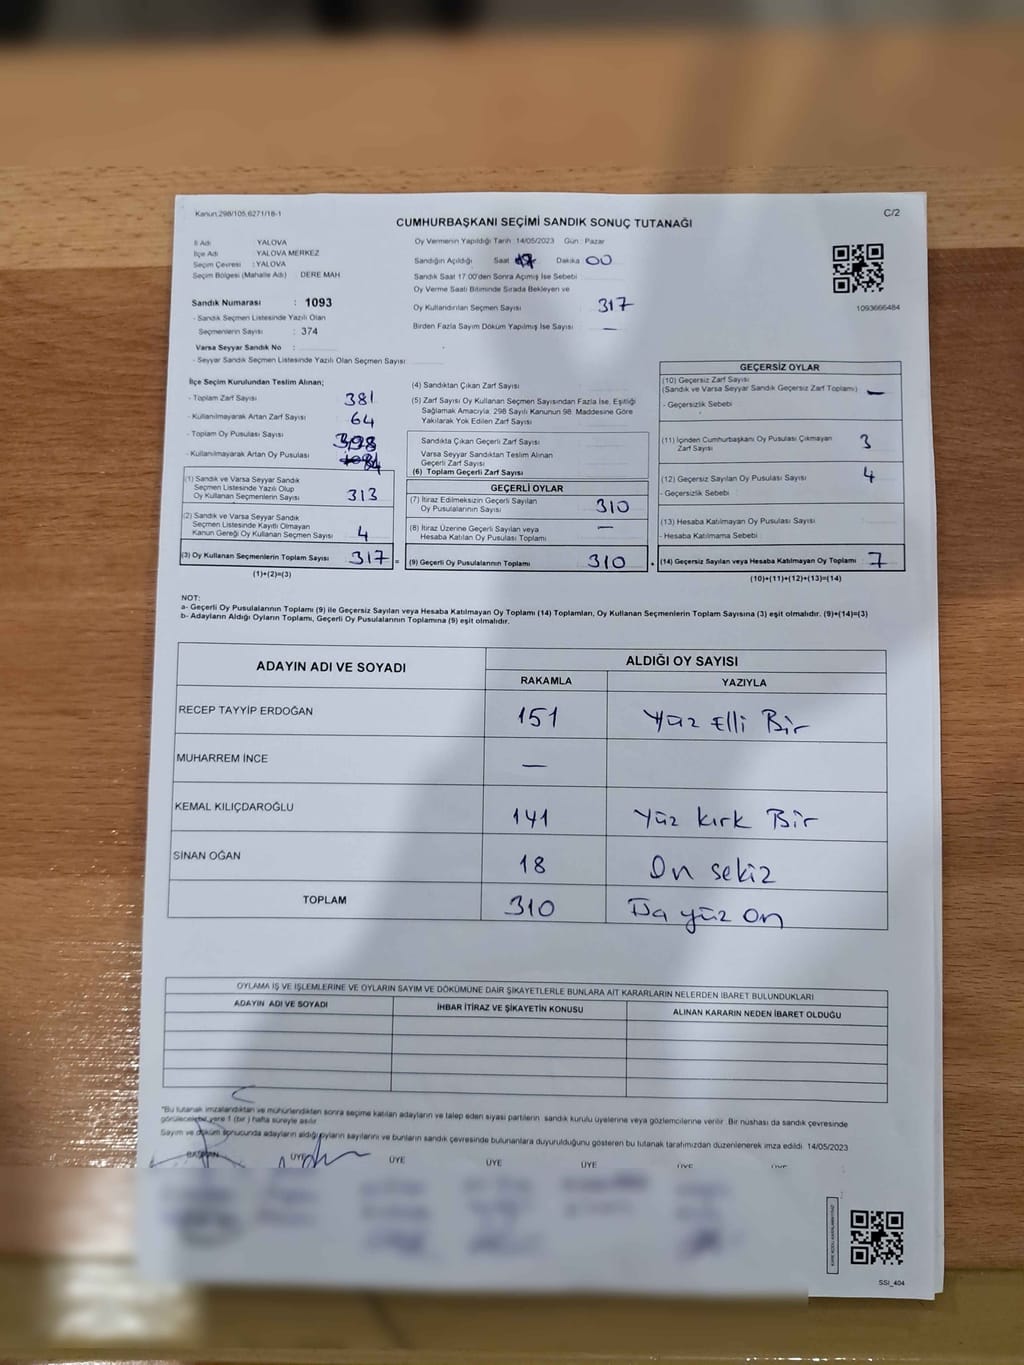 Kanun:298/105,6271/18-1
C/2
CUMHURBAŞKANI SEÇİMİ SANDIK SONUÇ TUTANAĞI
İl Adı YALOVA
İlçe Adı YALOVA MERKEZ
Seçim Çevresi : YALOVA
Seçim Bölgesi (Mahalle Adı) DERE MAH
Sandık Numarası : 1093
- Sandık Seçmen Listesinde Yazılı Olan
Seçmenlerin Sayısı : 374
Varsa Seyyar Sandık No :
- Seyyar Sandık Seçmen Listesinde Yazılı Olan Seçmen Sayısı
Oy Vermenin Yapıldığı Tarih : 14/05/2023 Gün : Pazar
Sandığın Açıldığı Saat Dakika 00
Sandık Saat 17:00'den Sonra Açımış İse Sebebi
Oy Verme Saati Bitiminde Sırada Bekleyen ve
Oy Kullandırılan Seçmen Sayısı 317
Birden Fazla Sayım Döküm Yapılmış İse Sayısı —
1093666484
İlçe Seçim Kurulundan Teslim Alınan;
- Toplam Zarf Sayısı 381
- Kullanılmayarak Artan Zarf Sayısı 64
- Toplam Oy Pusulası Sayısı
- Kullanılmayarak Artan Oy Pusulası
(1) Sandık ve Varsa Seyyar Sandık
Seçmen Listesinde Yazılı Olup
Oy Kullanan Seçmenlerin Sayısı 313
(2) Sandık ve Varsa Seyyar Sandık
Seçmen Listesinde Kayıtlı Olmayan
Kanun Gereği Oy Kullanan Seçmen Sayısı 4
(3) Oy Kullanan Seçmenlerin Toplam Sayısı 317
(1)+(2)=(3)
(4) Sandıktan Çıkan Zarf Sayısı
(5) Zarf Sayısı Oy Kullanan Seçmen Sayısından Fazla İse, Eşitliği
Sağlamak Amacıyla; 298 Sayılı Kanunun 98. Maddesine Göre
Yakılarak Yok Edilen Zarf Sayısı
Sandıkta Çıkan Geçerli Zarf Sayısı
Varsa Seyyar Sandıktan Teslim Alınan
Geçerli Zarf Sayısı
(6) Toplam Geçerli Zarf Sayısı
GEÇERLİ OYLAR
(7) İtiraz Edilmeksizin Geçerli Sayılan
Oy Pusulalarının Sayısı 310
(8) İtiraz Üzerine Geçerli Sayılan veya
Hesaba Katılan Oy Pusulası Toplamı —
= (9) Geçerli Oy Pusulalarının Toplamı 310
GEÇERSİZ OYLAR
(10) Geçersiz Zarf Sayısı
(Sandık ve Varsa Seyyar Sandık Geçersiz Zarf Toplamı) —
- Geçersizlik Sebebi
(11) İçinden Cumhurbaşkanı Oy Pusulası Çıkmayan
Zarf Sayısı 3
(12) Geçersiz Sayılan Oy Pusulası Sayısı 4
- Geçersizlik Sebebi
(13) Hesaba Katılmayan Oy Pusulası Sayısı
- Hesaba Katılmama Sebebi
(14) Geçersiz Sayılan veya Hesaba Katılmayan Oy Toplamı 7
(10)+(11)+(12)+(13)=(14)
NOT:
a- Geçerli Oy Pusulalarının Toplamı (9) ile Geçersiz Sayılan veya Hesaba Katılmayan Oy Toplamı (14) Toplamları, Oy Kullanan Seçmenlerin Toplam Sayısına (3) eşit olmalıdır. (9)+(14)=(3)
b- Adayların Aldığı Oyların Toplamı, Geçerli Oy Pusulalarının Toplamına (9) eşit olmalıdır.
ADAYIN ADI VE SOYADI ALDIĞI OY SAYISI
RAKAMLA YAZIYLA
RECEP TAYYİP ERDOĞAN 151 Yüz Elli Bir
MUHARREM İNCE —
KEMAL KILIÇDAROĞLU 141 Yüz kırk Bir
SİNAN OĞAN 18 On sekiz
TOPLAM 310 yüz On
OYLAMA İŞ VE İŞLEMLERİNE VE OYLARIN SAYIM VE DÖKÜMÜNE DAİR ŞİKAYETLERLE BUNLARA AİT KARARLARIN NELERDEN İBARET BULUNDUKLARI
ADAYIN ADI VE SOYADI İHBAR İTİRAZ VE ŞİKAYETİN KONUSU ALINAN KARARIN NEDEN İBARET OLDUĞU
"Bu tutanak imzalandıktan ve mühürlendikten sonra seçime katılan adayların ve talep eden siyasi partilerin sandık kurulu üyelerine veya gözlemcilerine verilir. Bir nüshası da sandık çevresinde
görülecek bir yere 1 (bir) hafta süreyle asılır.
Sayım ve döküm sonucunda adayların aldığı oyların sayılarını ve bunların sandık çevresinde bulunanlara duyurulduğunu gösteren bu tutanak tarafımızdan düzenlenerek imza edildi. 14/05/2023
BAŞKAN ÜYE ÜYE ÜYE ÜYE
SSI_404